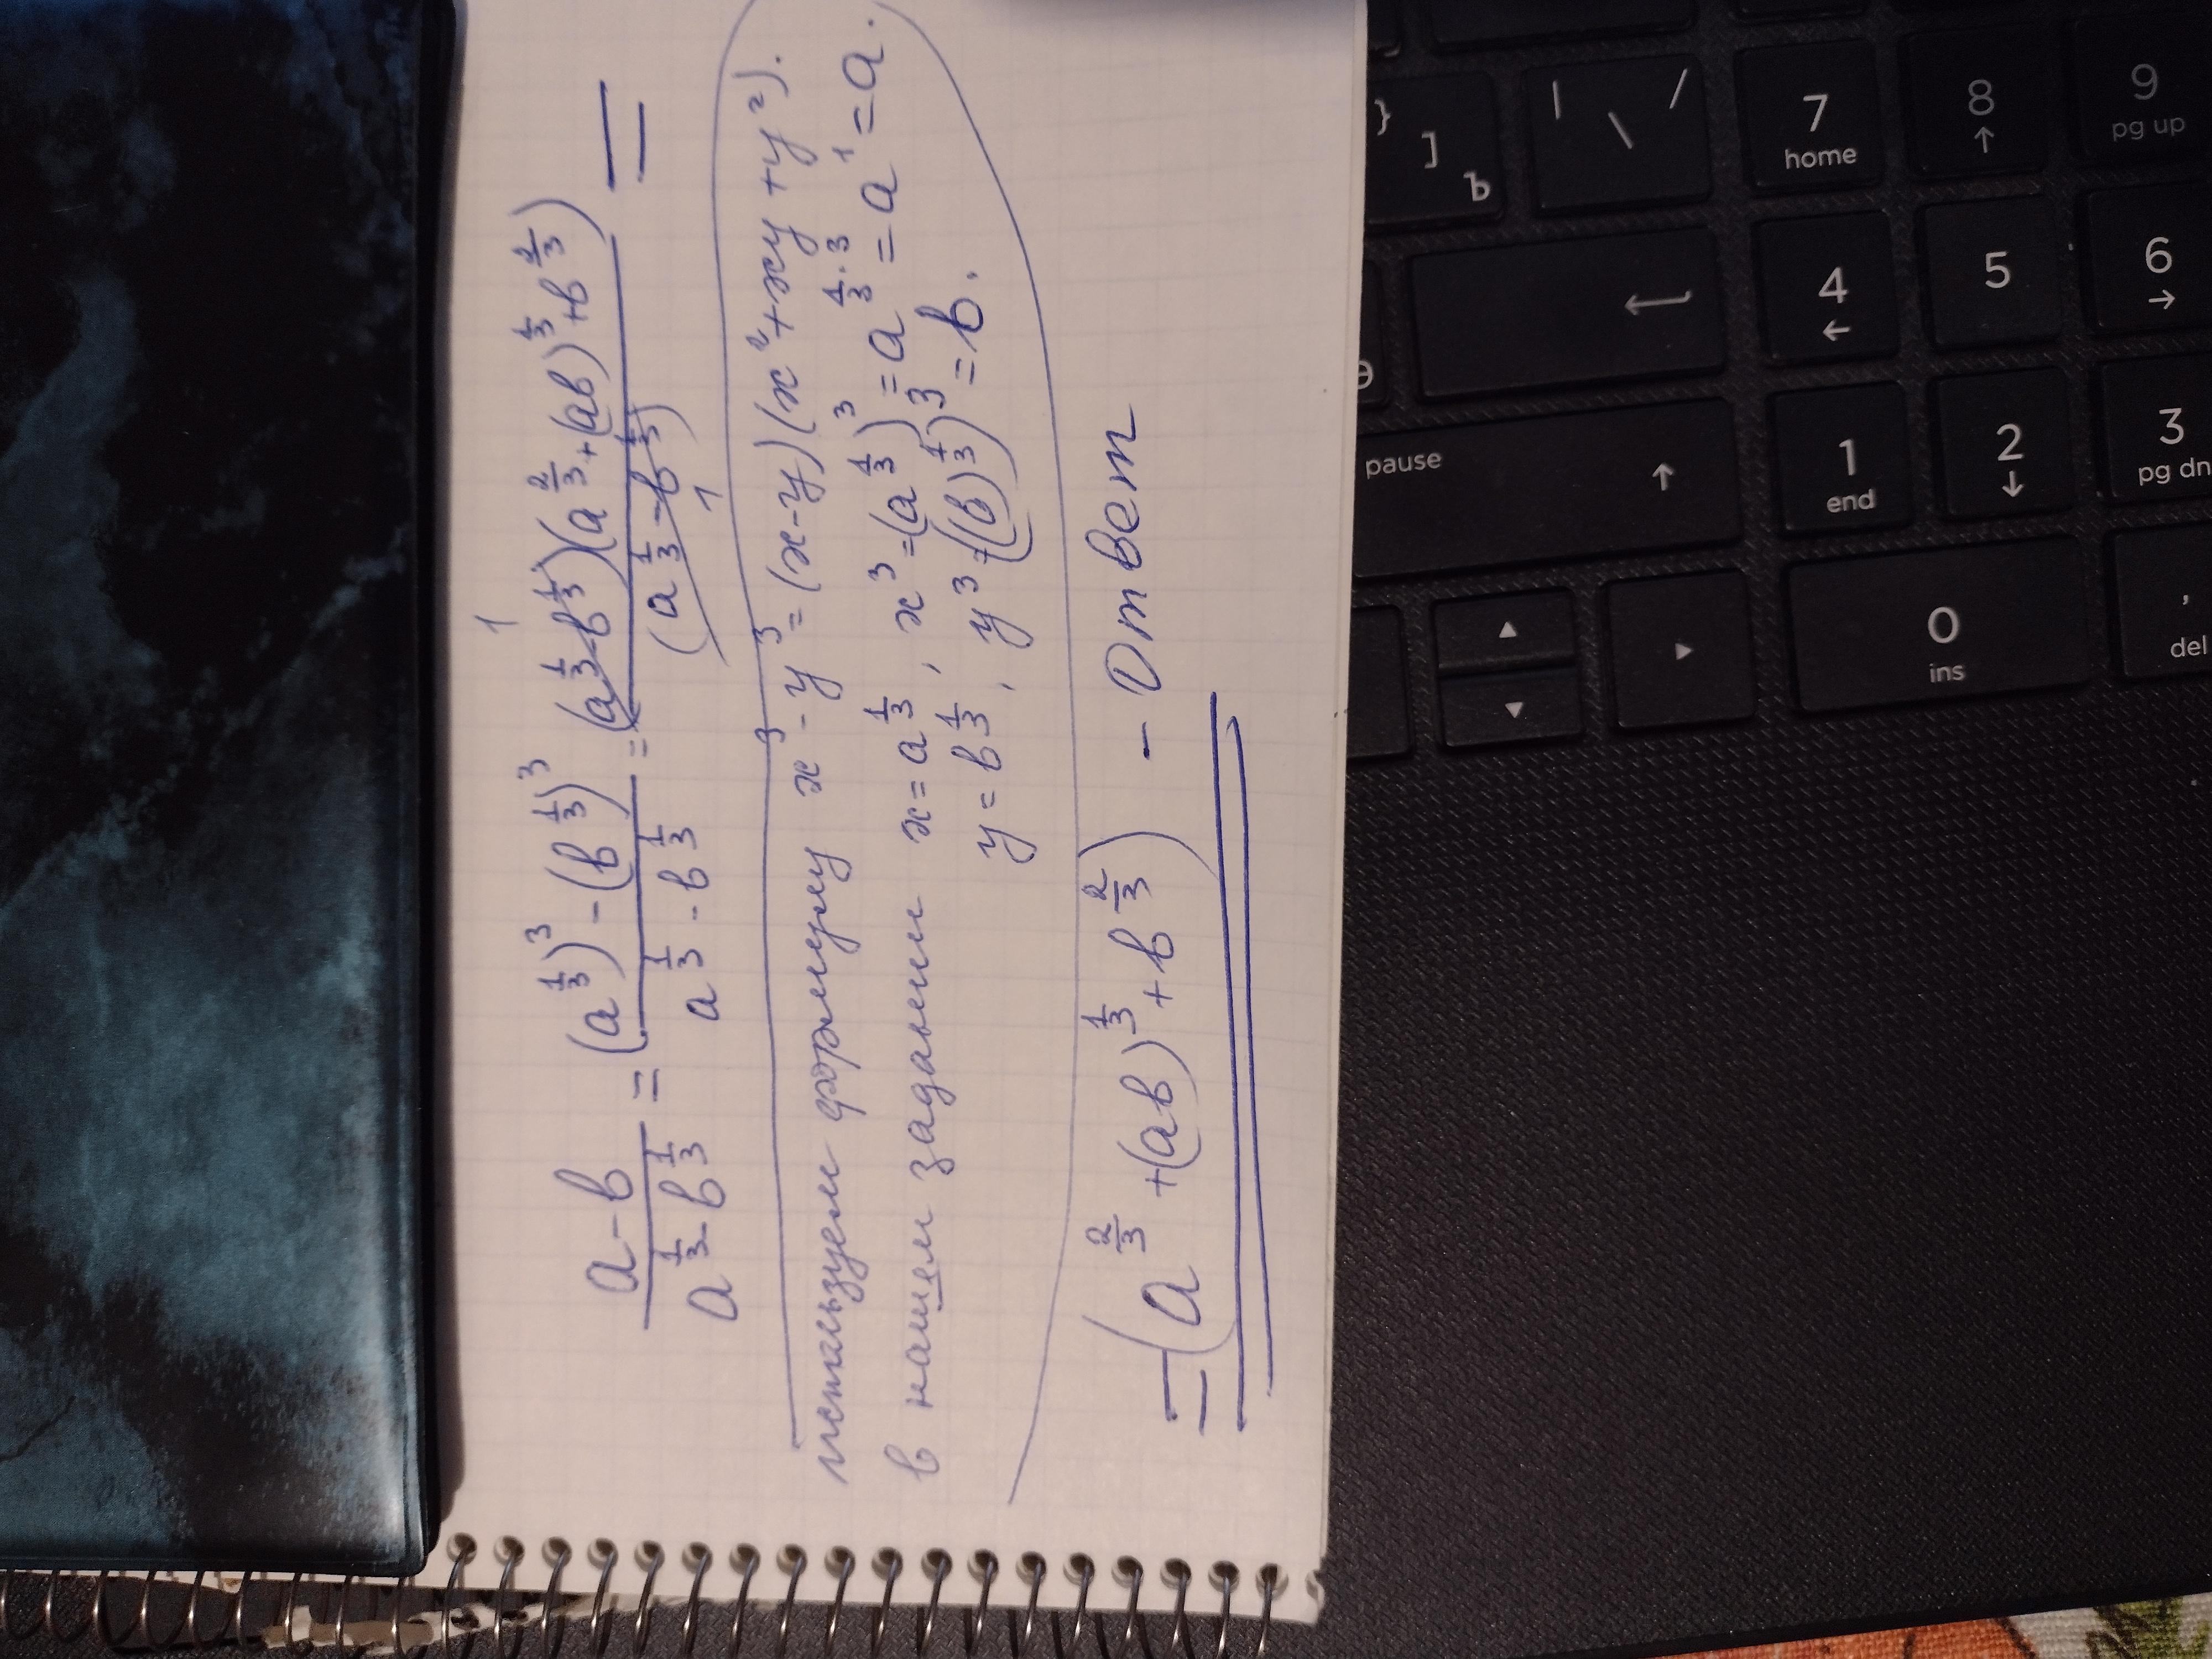 a-b / a^(1/3)-b^(1/3) = (a^(1/3))^3-(b^(1/3))^3 / a^(1/3)-b^(1/3) = (a^(1/3)-b^(1/3))(a^(2/3)+(ab)^(1/3)+b^(2/3)) / (a^(1/3)-b^(1/3)) =
1
1
используем формулу x^3-y^3=(x-y)(x^2+xy+y^2).
в нашем задании x=a^(1/3), x^3=(a^(1/3))^3=a^(1/3·3)=a^1=a.
y=b^(1/3), y^3=((b)^(1/3))^3=b.
=(a^(2/3)+(ab)^(1/3)+b^(2/3)) - Ответ
}
]
Ъ
|
\
/
7
home
8
↑
9
pg up
Э
4
←
5
6
→
pause
↑
1
end
2
↓
3
pg dn
0
ins
,
del